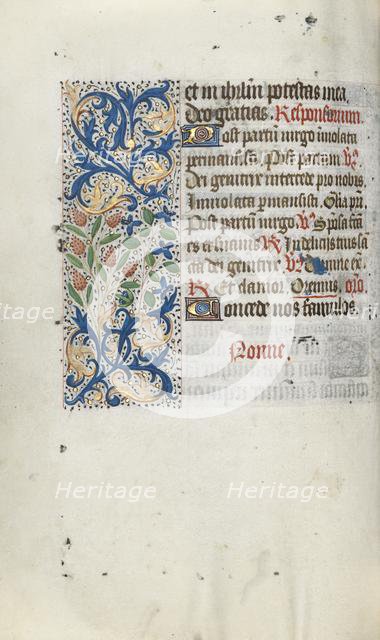 et in ihrl'm potestas mea.
Deo gratias. Responsorium
Post partū virgo inviolata
permans. Post partum. V̄.
Dei genitrix intercede pro nobis.
Inviolata permansisti. Gl'a p̄ri
Post partū virgo. V̄. Speciosa fc̄a
es et suavis. R̄. In delicijs tuis sā
cta dei genitrix. V̄. Dn̄e ex.
R̄. Et clamor. Oremus. or̄o.
Concede nos famulos.
Nonne.
Heritage Heritage
Heritage Heritage